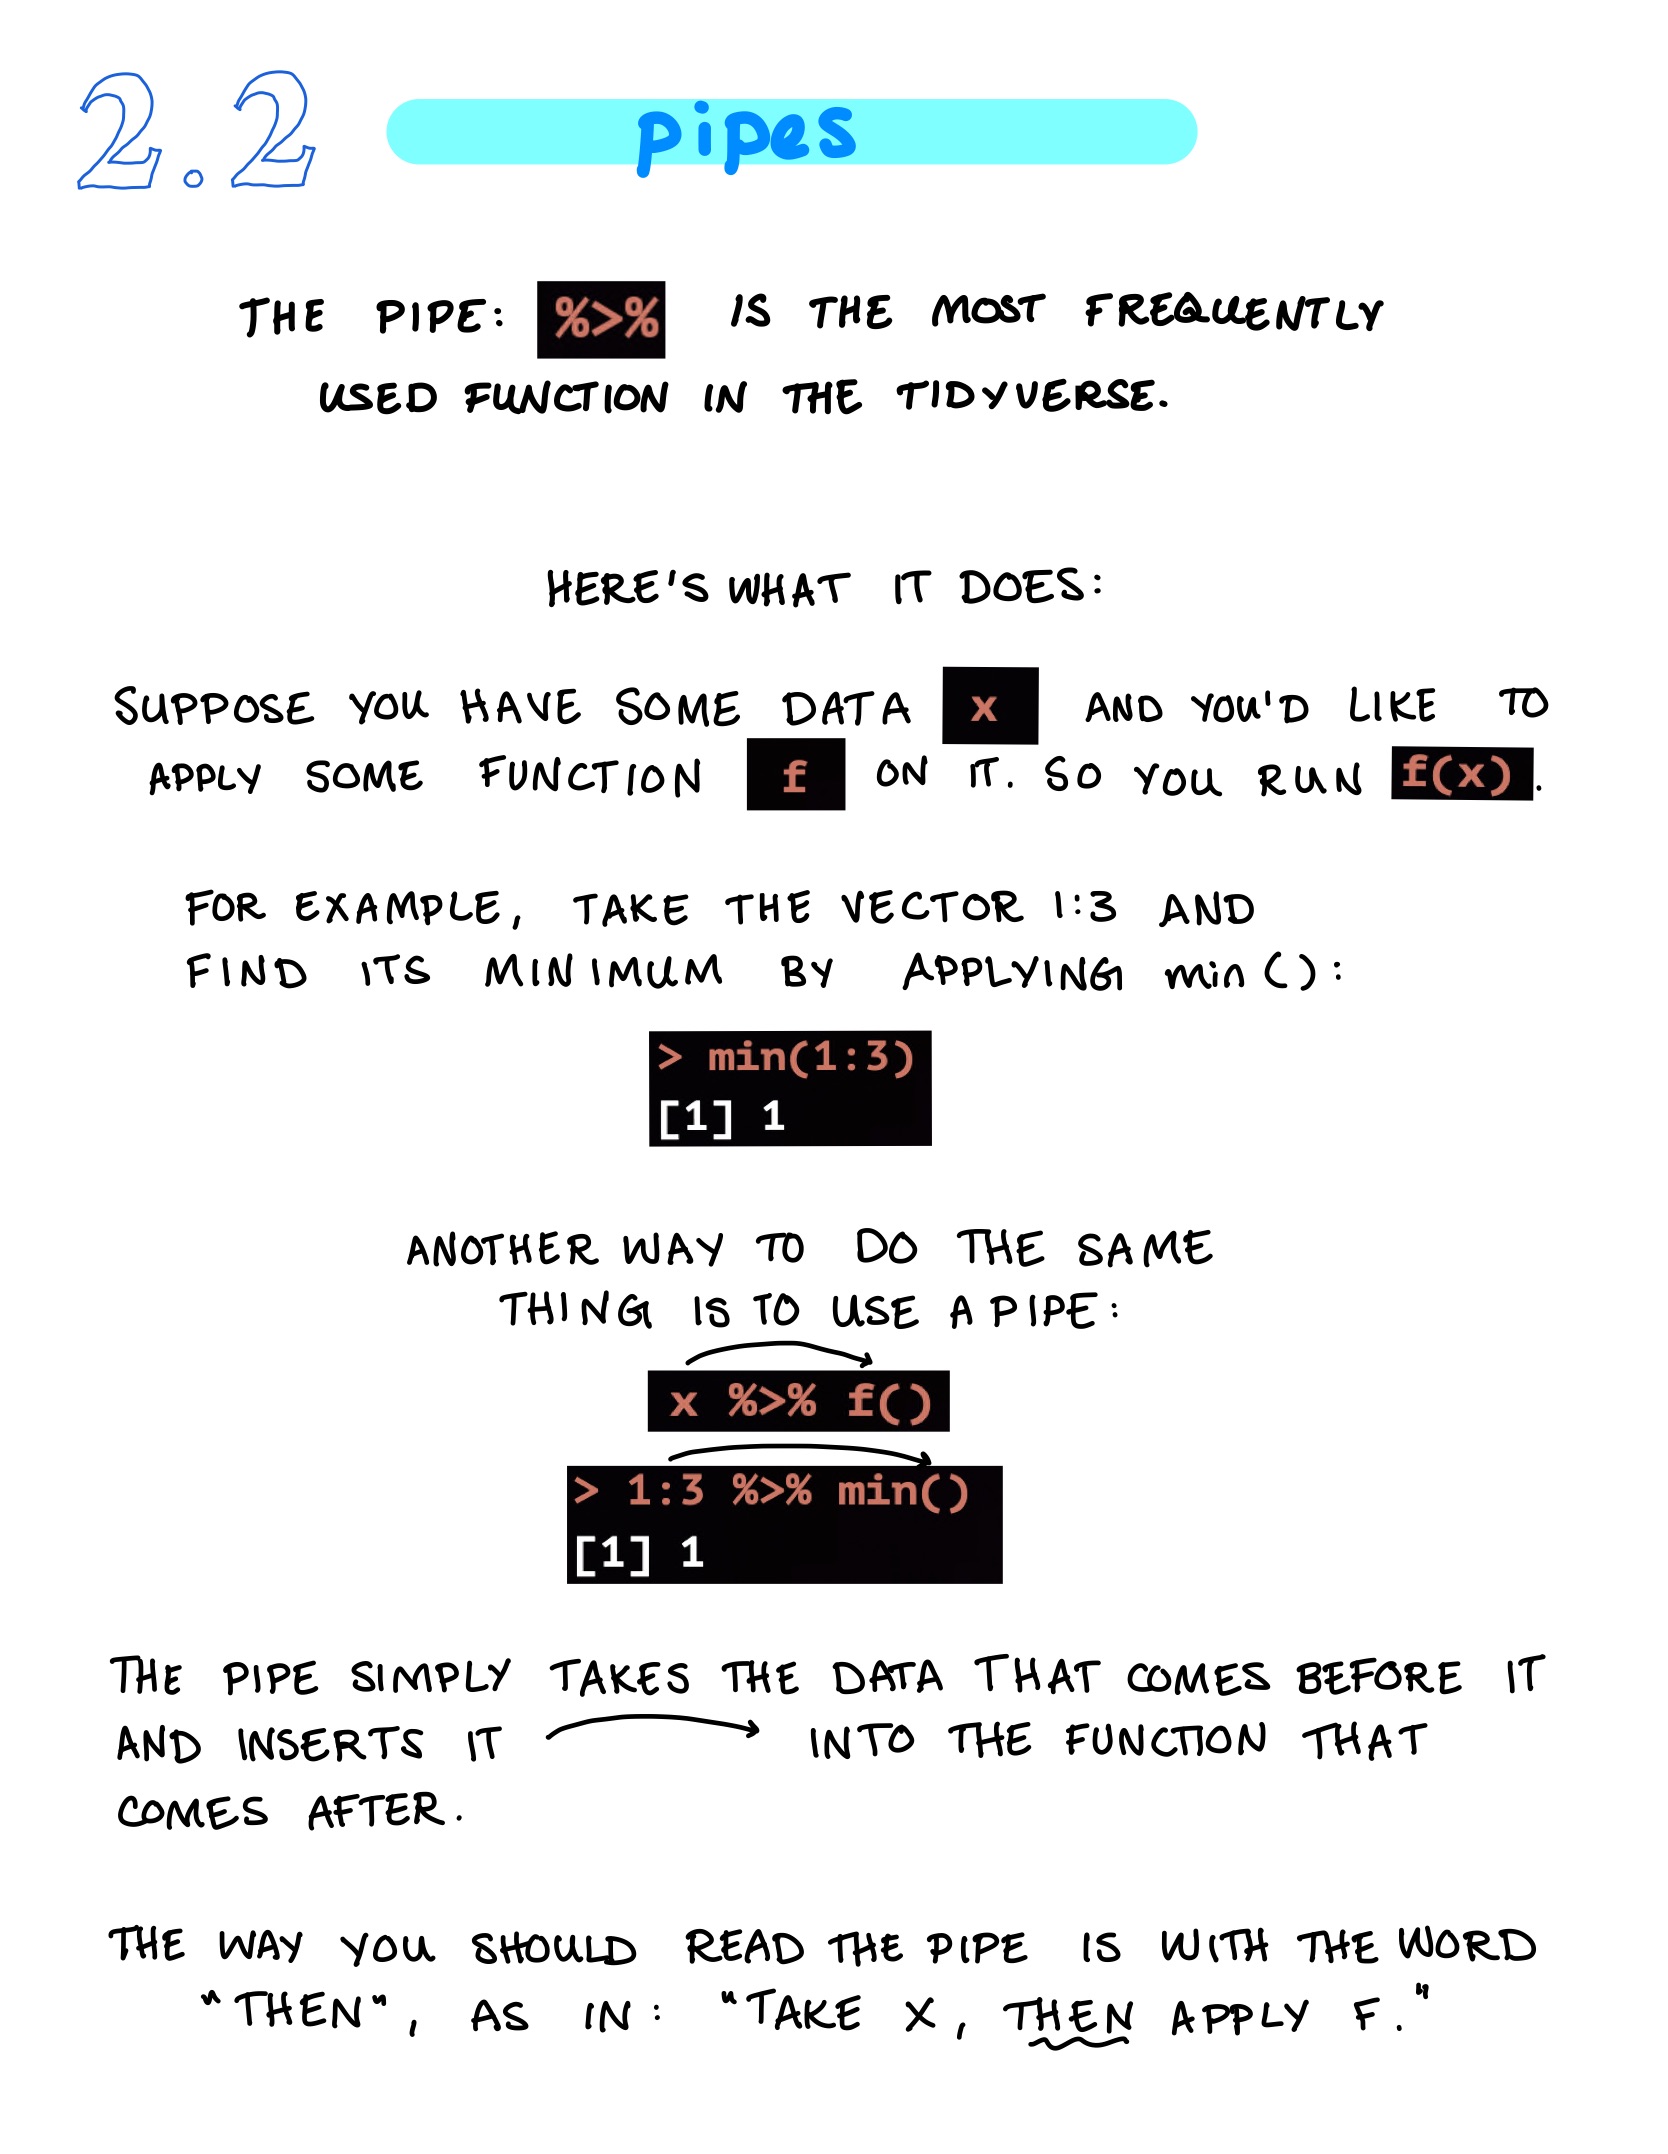 2.2 pipes
THE PIPE: %>% IS THE MOST FREQUENTLY
USED FUNCTION IN THE TIDYVERSE.
HERE'S WHAT IT DOES:
SUPPOSE YOU HAVE SOME DATA x AND YOU'D LIKE TO
APPLY SOME FUNCTION f ON IT. SO YOU RUN f(x).
FOR EXAMPLE, TAKE THE VECTOR 1:3 AND
FIND ITS MINIMUM BY APPLYING min():
> min(1:3)
[1] 1
ANOTHER WAY TO DO THE SAME
THING IS TO USE A PIPE:
x %>% f()
> 1:3 %>% min()
[1] 1
THE PIPE SIMPLY TAKES THE DATA THAT COMES BEFORE IT
AND INSERTS IT INTO THE FUNCTION THAT
COMES AFTER.
THE WAY YOU SHOULD READ THE PIPE IS WITH THE WORD
"THEN", AS IN: "TAKE X, THEN APPLY F."